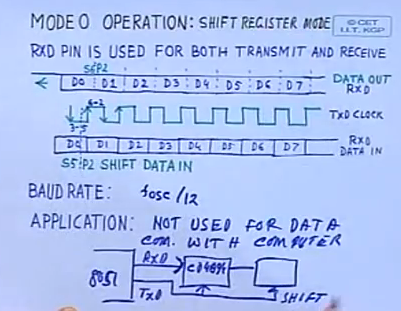 MODE 0 OPERATION: SHIFT REGISTER MODE
© CET
I.I.T. KGP
RXD PIN IS USED FOR BOTH TRANSMIT AND RECEIVE
S6P2
D0 D1 D2 D3 D4 D5 D6 D7
DATA OUT
RXD
TXD CLOCK
D0 D1 D2 D3 D4 D5 D6 D7
RXD
DATA IN
S5P2 SHIFT DATA IN
BAUD RATE: fosc/12
APPLICATION: NOT USED FOR DATA
COM. WITH COMPUTER
8051
RXD
CD4094
TXD
SHIFT